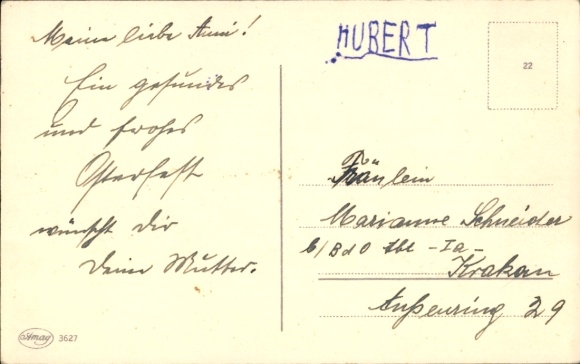 Meine liebe Anni!
Ein gesundes
und frohes
Osterfest
wünscht dir
deine Mutter.
HUBERT
22
Fräulein
Marianne Schneider
b/BdO Abt -Ia-
Krakau
Außenring 29
Amag 3627